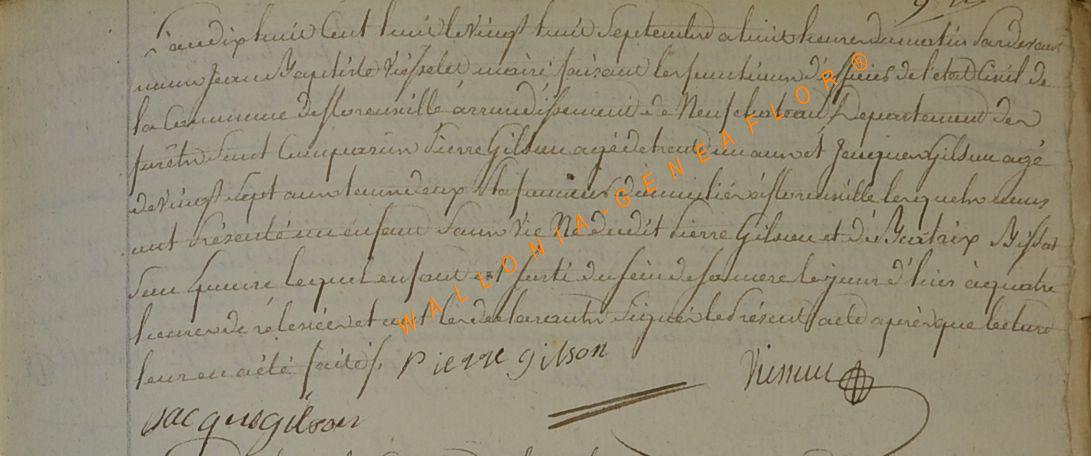 L'an dix huit Cent huit le vingt huit Septembre a huit heures du matin Pardevant
nous Jean Baptiste maire faisant les fonctions d'officier de l'etat Civil de
la Commune de florenville arrondissement de Neufchateau Departement des
forêts Sont Comparus Pierre Gilson agé de trente un ans et Jacques Gilson agé
de vingt Sept ans tous deux domicilié à florenville lesquels nous
ont présenté un enfant Sans Vie Né dudit Pierre Gilson et de Beatrix
Son epouse lequel enfant est sorti du sein de sa mere le jour d'hier à quatre
heures de relevée et ont les declarants Signé le Présent acte après que lecture
leur en a été faite
Pierre gilson
jacque gilson
WALLONIA-GENEAFLOR®